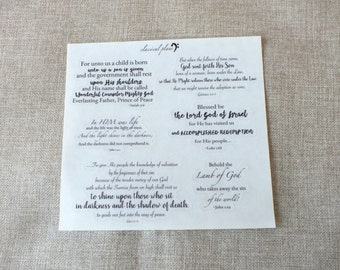 classical plan
For unto us a child is born
unto us a son is given
and the government shall rest
upon His shoulders
and His name shall be called
Wonderful Counselor Mighty God
Everlasting Father, Prince of Peace
But when the fullness of time came,
God sent forth His Son
born of a woman, born under the Law
so that He Might redeem those who were under the Law
that we might receive the adoption as sons
In HIM was life
and the life was the light of men.
And the light shines in the darkness,
And the darkness did not comprehend it.
Blessed be
the Lord God of Israel
for He has visited us
and ACCOMPLISHED REDEMPTION
for His people...
To give His people the knowledge of salvation
by the forgiveness of their sins
because of the tender mercy of our God
with which the Sunrise from on high shall visit us
to shine upon those who sit
in darkness and the shadow of death,
to guide our feet into the way of peace.
Behold the
Lamb of God
who takes away the sin
of the world!